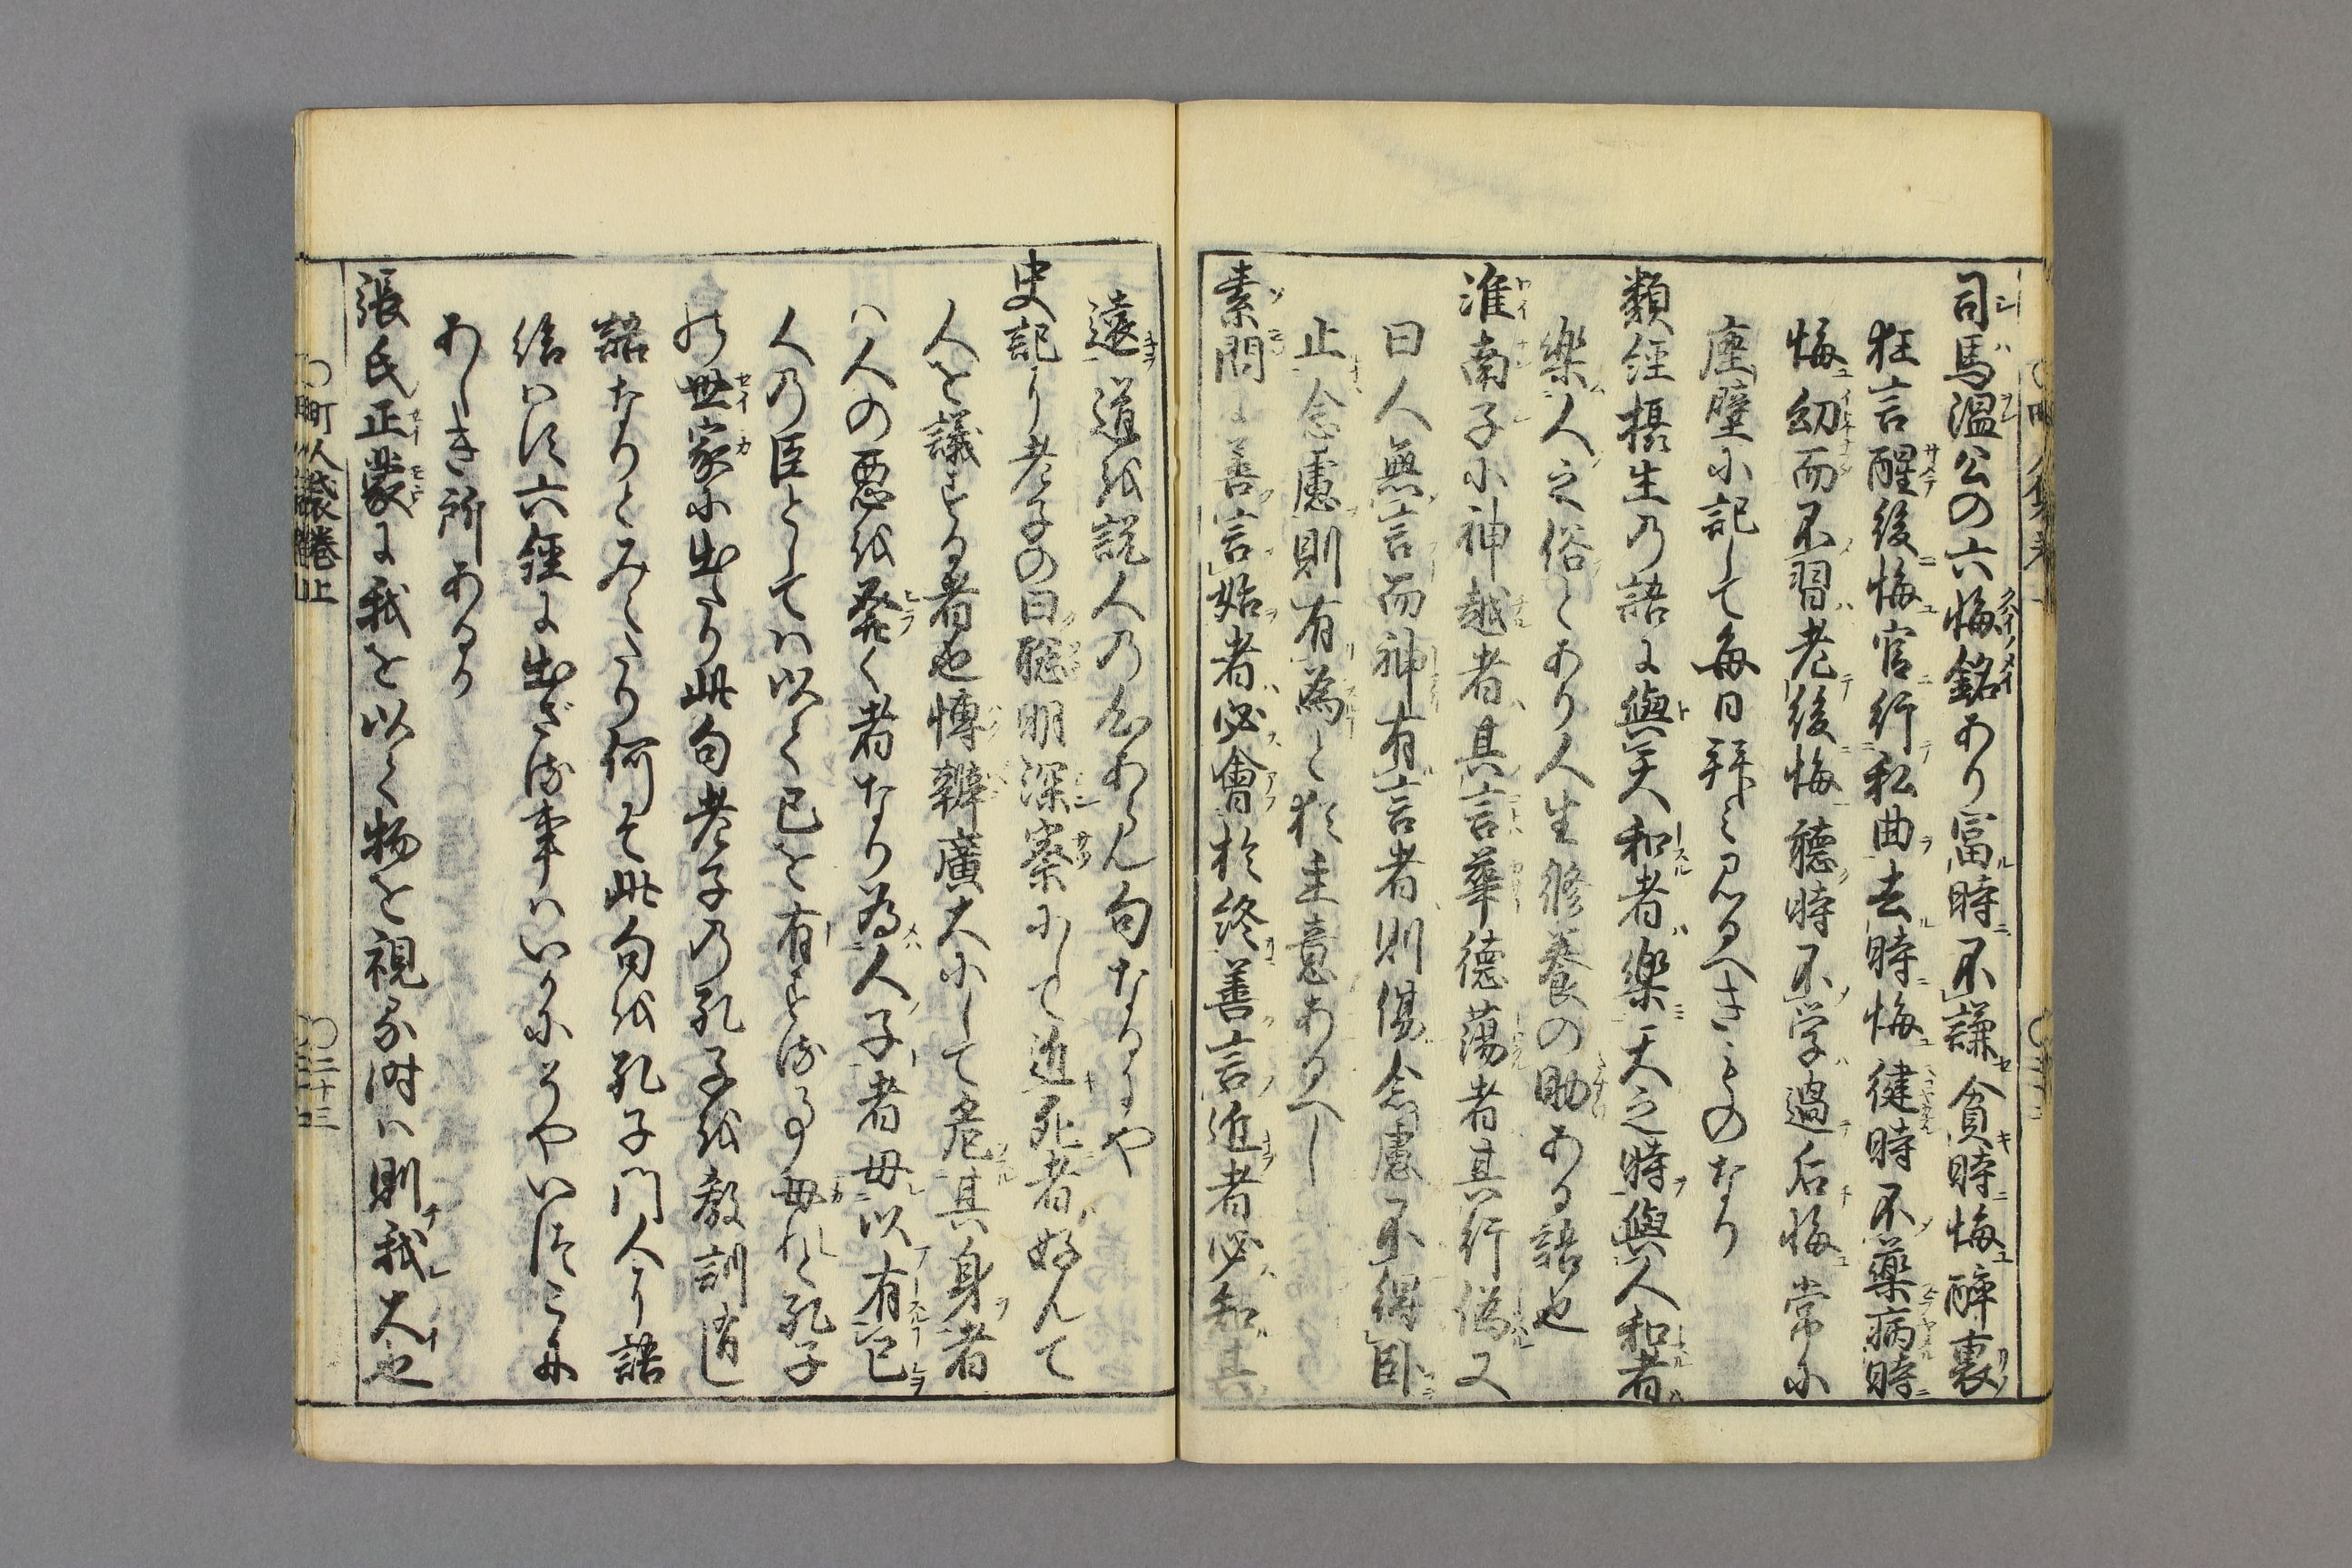 司馬温公の六悔銘あり富時不謙貪時悔醉裏
狂言醒後悔官行私曲去時悔健時不藥病時
悔幼而不習老後悔聴時不学過后悔常に
座壁に記して毎日拜し見るへきものなり
類經攝生乃語に與天和者樂天之時與人和者
樂人之俗とあり人生修養の助ある語也
淮南子に神越者其言華德蕩者其行偽又
曰人無言而神有言者則傷念慮不得臥
止念慮則有為と猶主意あるへし
素問に善言始者必會於終善言近者必知其
遠道を説人乃知あらん句なるにや
史記に老子の曰聡明深察にして近死者好んて
人を議する者也博辯廣大にして危其身者
ハ人の悪を発く者なり為人子者毋以有己
人乃臣としてハ以て己を有する事毋れと孔子
の世家に出たり此句老子乃孔子を教訓道し
語なりとみへたり何そ此句を孔子門人に語
給はす六經に出ざる事ハいかにそやいつこに
あしき所あるか
張氏正蒙に我を以て物を視る時ハ則我大也
町人袋巻上
二十三